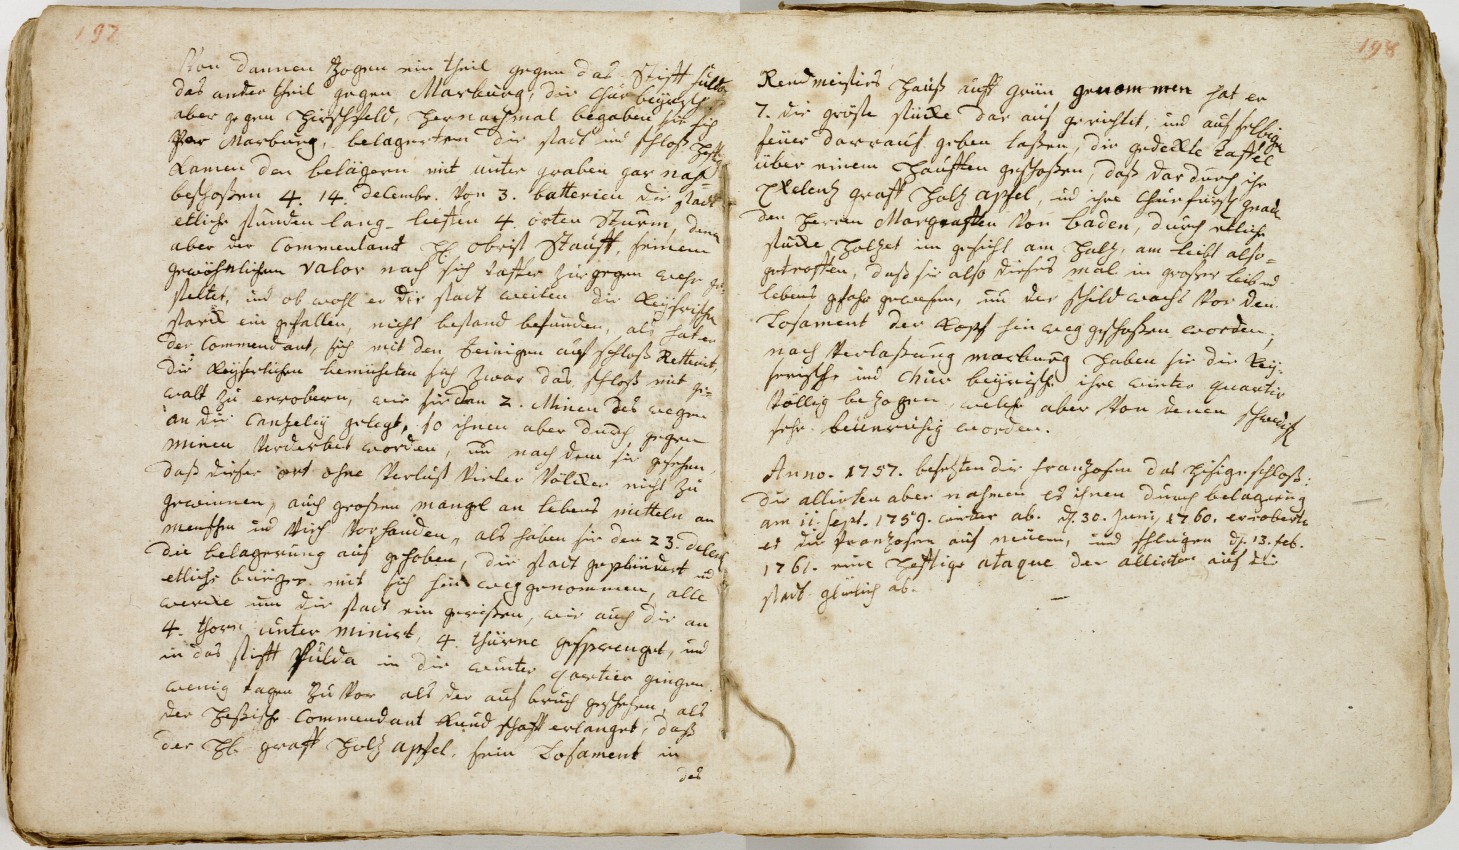 197
Von dannen Zogen ein theil gegen das Stifft fuld
das ander theil gegen Marburg, die Chur beÿrisch.
aber gegen Hirschfeld, hernachmal begaben sie sich
Vor Marburg, belagerten die statt und schloß hefftig
Kamen den belägern mit unter graben gar nah
beschoßen 4. 14. decembr. Von 3. batterien die statt
etliche stunden lang. liefen 4. orten Sturm, denen
aber der Commendant H. obrist Stauff, seinem
gewöhnlichen valor nach sich dapfer zur gegen wehr ge-
stellet, und ob wohl er die statt weilen die Keÿserische
starck ein gefallen, nicht bestand befunden, als hat er
der Commendant, sich mit den Seinigen auf schloß Rettirirt,
die Keÿserlichen bemüheten sich zwar das schloß mit ge-
walt zu erobern, wie sie dan 2. Minen des wegen
an die Cantzeleÿ gelegt, so ihnen aber durch gegen
minen Verderbet worden, und nach dem sie gesehen,
daß dieser ort ohne Verlust Vieler Völcker nicht zu
gewinnen, auch großen mangel an lebens mitteln an
menschen und Vieh Vorhanden, als haben sie den 23. decem
die belagerung auf gehoben, die statt geplündert und
etliche bürger mit sich hin weggenommen, alle
wercke um die statt ein gerißen, wie auch die an
4. thoren unter minirt, 4. thürne gesprenget, und
in das stifft Fulda in die winter quartier gingen.
wenig tagen zu Vor als der auf bruch geschehen, als
der heßische Commendant Kundschafft erlanget, daß
der H. graff Holtz apfel, sein Losament in
des
198
Rendmeisters Hauß auff grün genommen hat er
7. die gröste stücke dar auf gerichtet, und auf selbige
feuer darauf geben laßen, die gedeckte taffel
über einem hauffen geschoßen, daß dar durch ihr
Excelentz graff Holtz apfel, und ihre Churfürstl gnad.
den Herrn Margraffen Von Baden, durch etliche
stücke holtzes im gesicht am halß, am leibe also-
getroffen, daß sie also dieses mal in großer leib und
lebens gefahr gewesen, und der schildwacht Vor dem
Losament der Kopf hin weg geschoßen worden,
nach Verlaßung Marburg haben sie die Keÿ-
serische und Chur beÿrische ihre winter quartir
Völlig bezogen, welche aber Von denen schwedisch
sehr beunruhig worden.
Anno. 1757. besetzten die frantzosen das hisige schloß:
Die allirten aber nahmen es ihnen durch belagerung
am 11. Sept. 1759. wieder ab. d. 30. Junÿ 1760. eroberte
es die Frantzosen auf neuem, und schlugen d. 13. feb.
1761. eine hefftige ataque der allierten auf die
statt glücklich ab.